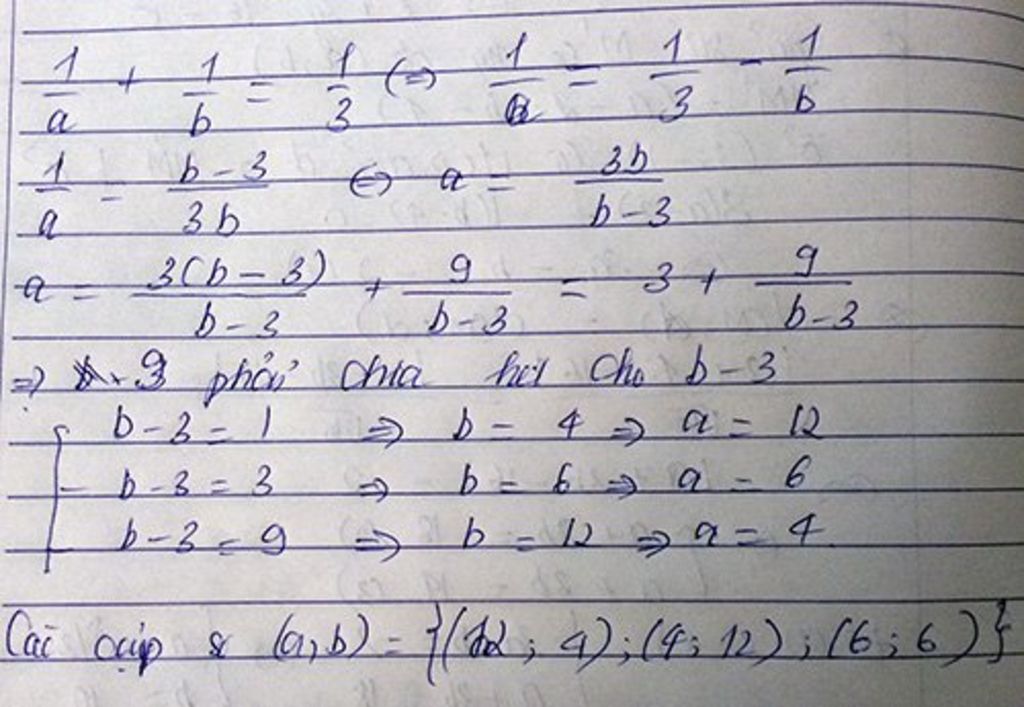 1/a + 1/b = 1/3 (⇒) 1/a = 1/3 - 1/b
1/a = b-3/3b ⇔ a = 3b/b-3
a = 3(b-3)/b-3 + 9/b-3 = 3 + 9/b-3
⇒ 9 phải chia hết cho b-3
b-3 = 1 ⇒ b = 4 ⇒ a = 12
b-3 = 3 ⇒ b = 6 ⇒ a = 6
b-3 = 9 ⇒ b = 12 ⇒ a = 4
Các cặp số (a,b) = {(12; 4); (4; 12); (6; 6)}